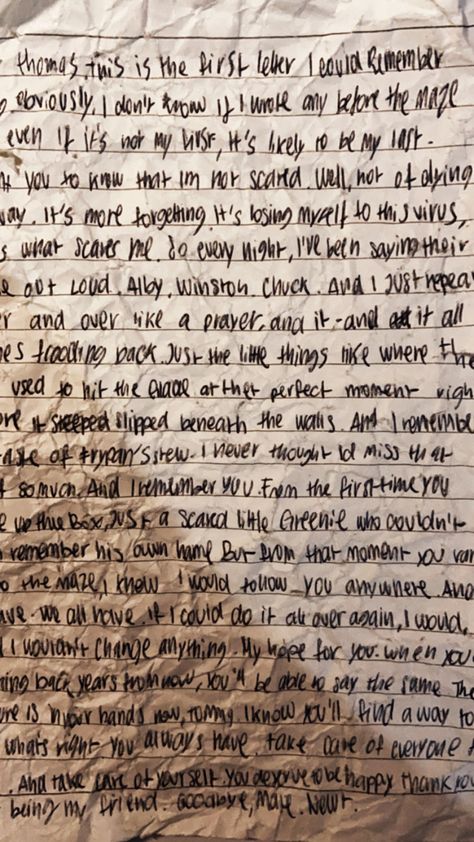 thomas, this is the first letter I could Remember
obviously, I don't know if I wrote any before the maze
even if it's not my first, It's likely to be my last.
you to know that im not scared. Well, not of dying
way. It's more forgetting. It's losing myself to this virus,
s what scares me. So every night, I've been saying their
out Loud. Alby. Winston. Chuck. And I Just repea
r and over like a prayer, and it - and it all
es flooding back. Just the little things like where the
used to hit the Glade at ther perfect moment righ
re it slipped beneath the walls. And I remembe
taste of frypan's stew. I never thought Id miss that
so much. And I remember YOU. From the first time you
up the Box, Just a scared little Greenie who couldn't
remember his own name But from that moment you ran
o the maze, I knew I would follow you anywhere. And
ave. We all have. If I could do it all over again, I would,
I wouldn't change anything. My hope for you. when you'
ing back years from now, You'll be able to say the same. The
re is in your hands now, tommy. I know you'll find a way to
what's right you always have. take care of everyone f
. And take care of yourself. you deserve to be happy. thank you
being my friend. Goodbye, Mate. Newt.